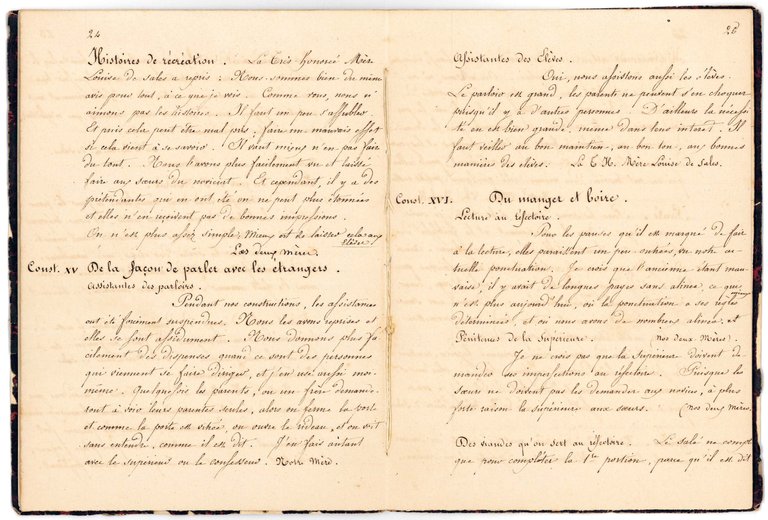 24
Histoires de récréation. La Très honorée Mère
Louise de Sales a repris : Nous sommes bien du même
avis pour tout, à ce que je vois. Comme vous, nous n'
aimons pas les histoires. Il faut un peu s'affubler
Et puis cela peut être mal pris, faire un mauvais effet
si cela vient à se savoir. Il vaut mieux n'en pas faire
du tout. Nous l'avons plus facilement vu et laissé
faire aux sœurs du noviciat. Et cependant, il y a des
prétendantes qui en ont été on ne peut plus étonnées
et elles n'en reçoivent pas de bonnes impressions.
On n'est plus assez simple, Mieux est de laisser cela aux
élèves
Les deux Mères.
Const. XV De la façon de parler avec les étrangers.
Assistantes des parloirs.
Pendant nos constructions, les assistances
ont été forcément suspendues. Nous les avons reprises et
elles se font assidûment. Nous donnons plus fa
cilement des dispenses quand ce sont des personnes
qui viennent se faire diriger, et j'en use aussi moi-
même. Quelquefois les parents, ou un frère demande-
ront à voir leurs parentes seules, alors on ferme la porte
et comme la porte est vitrée, on ouvre le rideau, et on voit
sans entendre, comme il est dit. J'en fais autant
avec le supérieur ou le confesseur. Notre Mère.
25
Assistantes des Elèves.
Oui, nous assistons aussi les élèves.
Le parloir est grand, les parents ne peuvent s'en choquer
puisqu'il y a d'autres personnes. D'ailleurs la nécessi
té en est bien grande, même dans leur intérêt. Il
faut veiller au bon maintien, au bon ton, aux bonnes
manières des élèves. La T. H. Mère Louise de Sales.
Const. XVI. Du manger et boire.
Lecture au réfectoire.
Pour les pauses qu'il est marqué de faire
à la lecture, elles paraissent un peu outrées, vu notre ac
tuelle ponctuation. Je crois que l'ancienne étant mau-
vaise, il y avait de longues pages sans alinéa, ce qui
n'est plus aujourd'hui, où la ponctuation a ses règles
déterminées, et où nous avons de nombreux alinéa, et
Pénitences de la Supérieure. (Nos deux Mères)
Je ne crois pas que la Supérieure doivent de-
mander ses imperfections au réfectoire. Puisque les
sœurs ne doivent pas les demander aux novices, à plus
forte raison la supérieure aux sœurs. (Nos deux Mères.
Des viandes qu'on sert au réfectoire. Le salé ne compte
que pour compléter la 1re portion, parce qu'il est dit